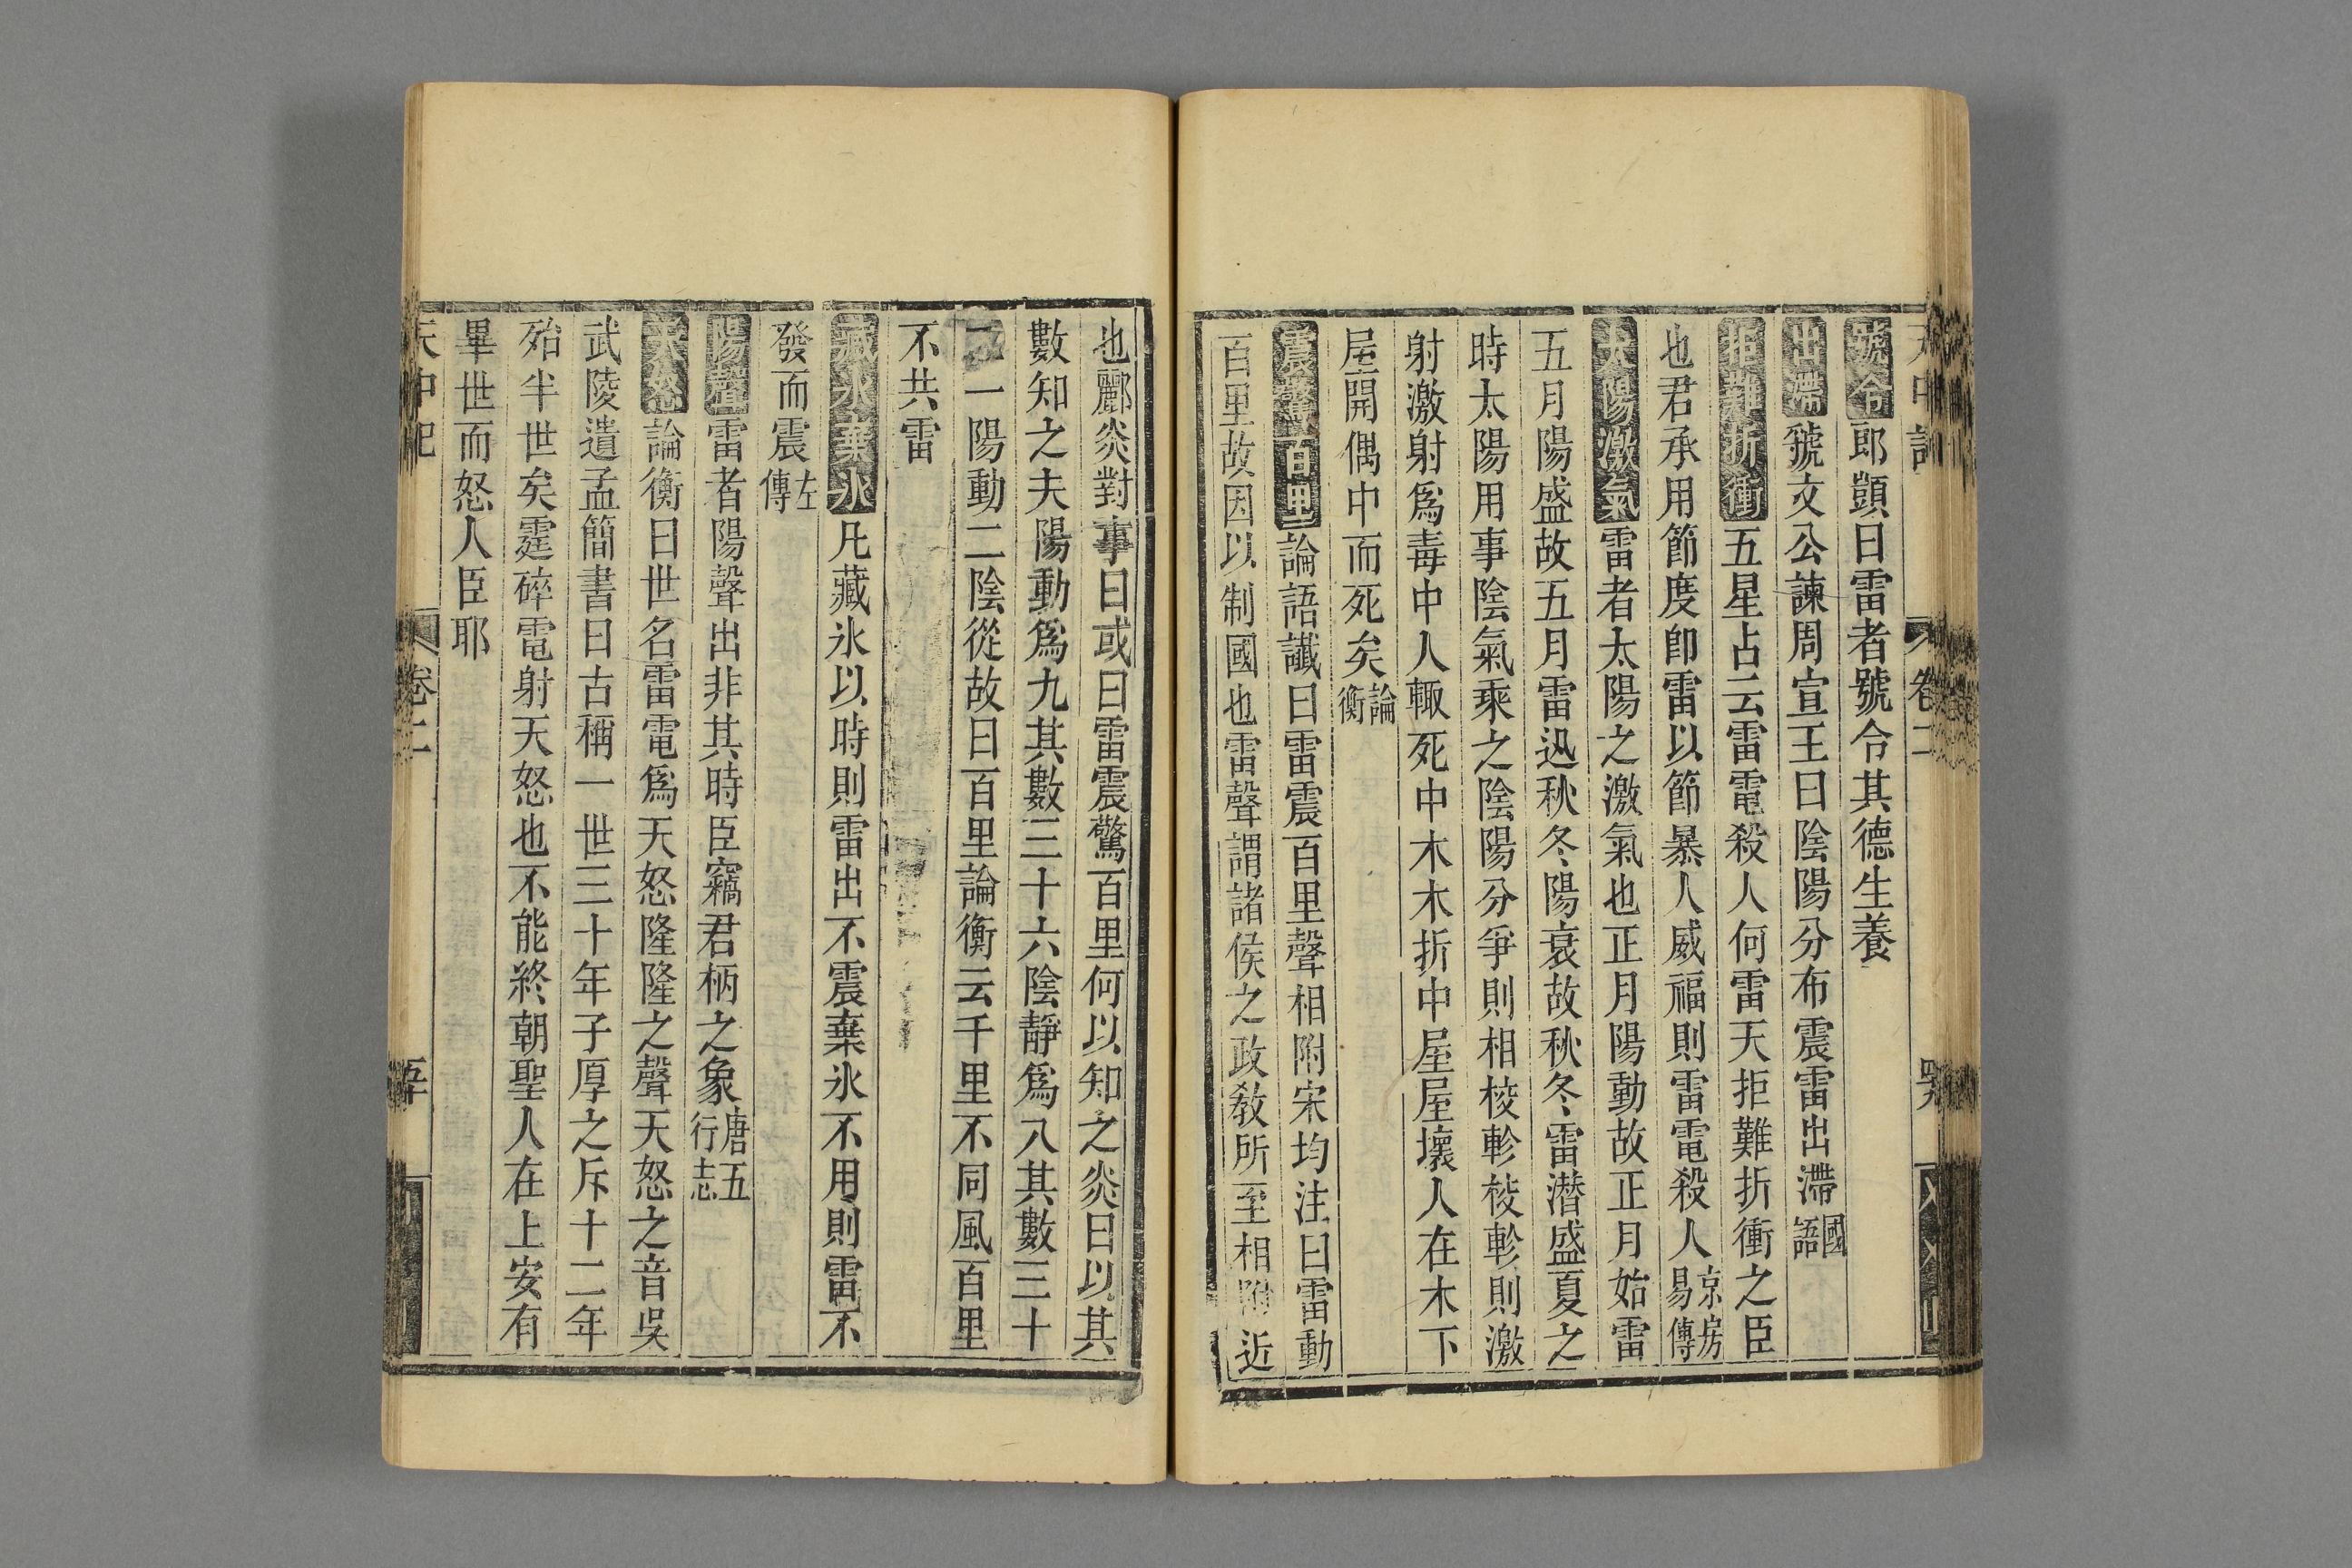 號令郎顗曰雷者號令其德生養
出滯虢文公諫周宣王曰陰陽分布震雷出滯國語
拒難折衝五星占云雷電殺人何雷天拒難折衝之臣
也君承用節度卽雷以節暴人威福則雷電殺人京房易傳
太陽激氣雷者太陽之激氣也正月陽動故正月始雷
五月陽盛故五月雷迅秋冬陽衰故秋冬雷潛盛夏之
時太陽用事陰氣乘之陰陽分爭則相校軫校軫則激
射激射爲毒中人輙死中木木折中屋屋壞人在木下
屋開偶中而死矣論衡
震驚百里論語讖曰雷震百里聲相附宋均注曰雷動
百里故因以制國也雷聲謂諸侯之政敎所至相附近
也酈炎對事曰或曰雷震驚百里何以知之炎曰以其
數知之夫陽動爲九其數三十六陰靜爲八其數三十
二一陽動二陰從故曰百里論衡云千里不同風百里
不共雷
藏氷棄氷凡藏氷以時則雷出不震棄氷不用則雷不
發而震左傳
陽聲雷者陽聲出非其時臣竊君柄之象唐五行志
天怒論衡曰世名雷電爲天怒隆隆之聲天怒之音吳
武陵遺孟簡書曰古稱一世三十年子厚之斥十二年
殆半世矣霆碎電射天怒也不能終朝聖人在上安有
畢世而怒人臣耶
天中記
卷二